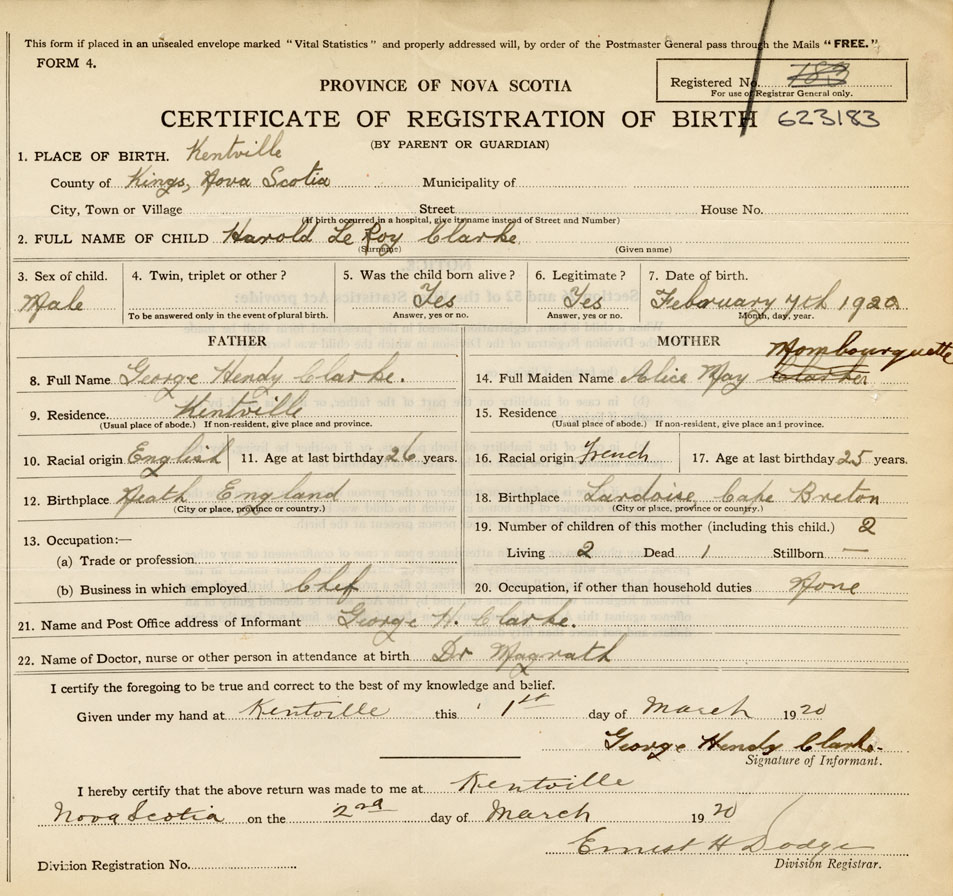 This form if placed in an unsealed envelope marked "Vital Statistics" and properly addressed will, by order of the Postmaster General pass through the Mails "FREE."
FORM 4.
PROVINCE OF NOVA SCOTIA
Registered No. 183
For use of Registrar General only.
CERTIFICATE OF REGISTRATION OF BIRTH 623183
(BY PARENT OR GUARDIAN)
1. PLACE OF BIRTH. Kentville
County of Kings, Nova Scotia Municipality of
City, Town or Village Street House No.
(If birth occurred in a hospital, give its name instead of Street and Number)
2. FULL NAME OF CHILD Harold Le Roy Clarke
(Surname) (Given name)
3. Sex of child. 4. Twin, triplet or other? 5. Was the child born alive? 6. Legitimate? 7. Date of birth.
Male Yes Yes February 7th 1920
To be answered only in the event of plural birth. Answer, yes or no. Answer, yes or no. Month, day, year.
FATHER
8. Full Name George Hendy Clarke.
9. Residence. Kentville
(Usual place of abode.) If non-resident, give place and province.
10. Racial origin English 11. Age at last birthday 26 years.
12. Birthplace Neath England
(City or place, province or country.)
13. Occupation:—
(a) Trade or profession
(b) Business in which employed Chef
MOTHER
Mombourquette
14. Full Maiden Name Alice May Clarke
15. Residence
(Usual place of abode.) If non-resident, give place and province.
16. Racial origin French 17. Age at last birthday 25 years.
18. Birthplace Lardoise, Cape Breton
(City or place, province or country.)
19. Number of children of this mother (including this child.) 2
Living 2 Dead 1 Stillborn —
20. Occupation, if other than household duties None
21. Name and Post Office address of Informant George H. Clarke.
22. Name of Doctor, nurse or other person in attendance at birth Dr Magrath
I certify the foregoing to be true and correct to the best of my knowledge and belief.
Given under my hand at Kentville this 1st day of March 1920
George Hendy Clarke.
Signature of Informant.
I hereby certify that the above return was made to me at Kentville
Nova Scotia on the 2nd day of March 1920
Ernest H Dodge
Division Registration No. Division Registrar.